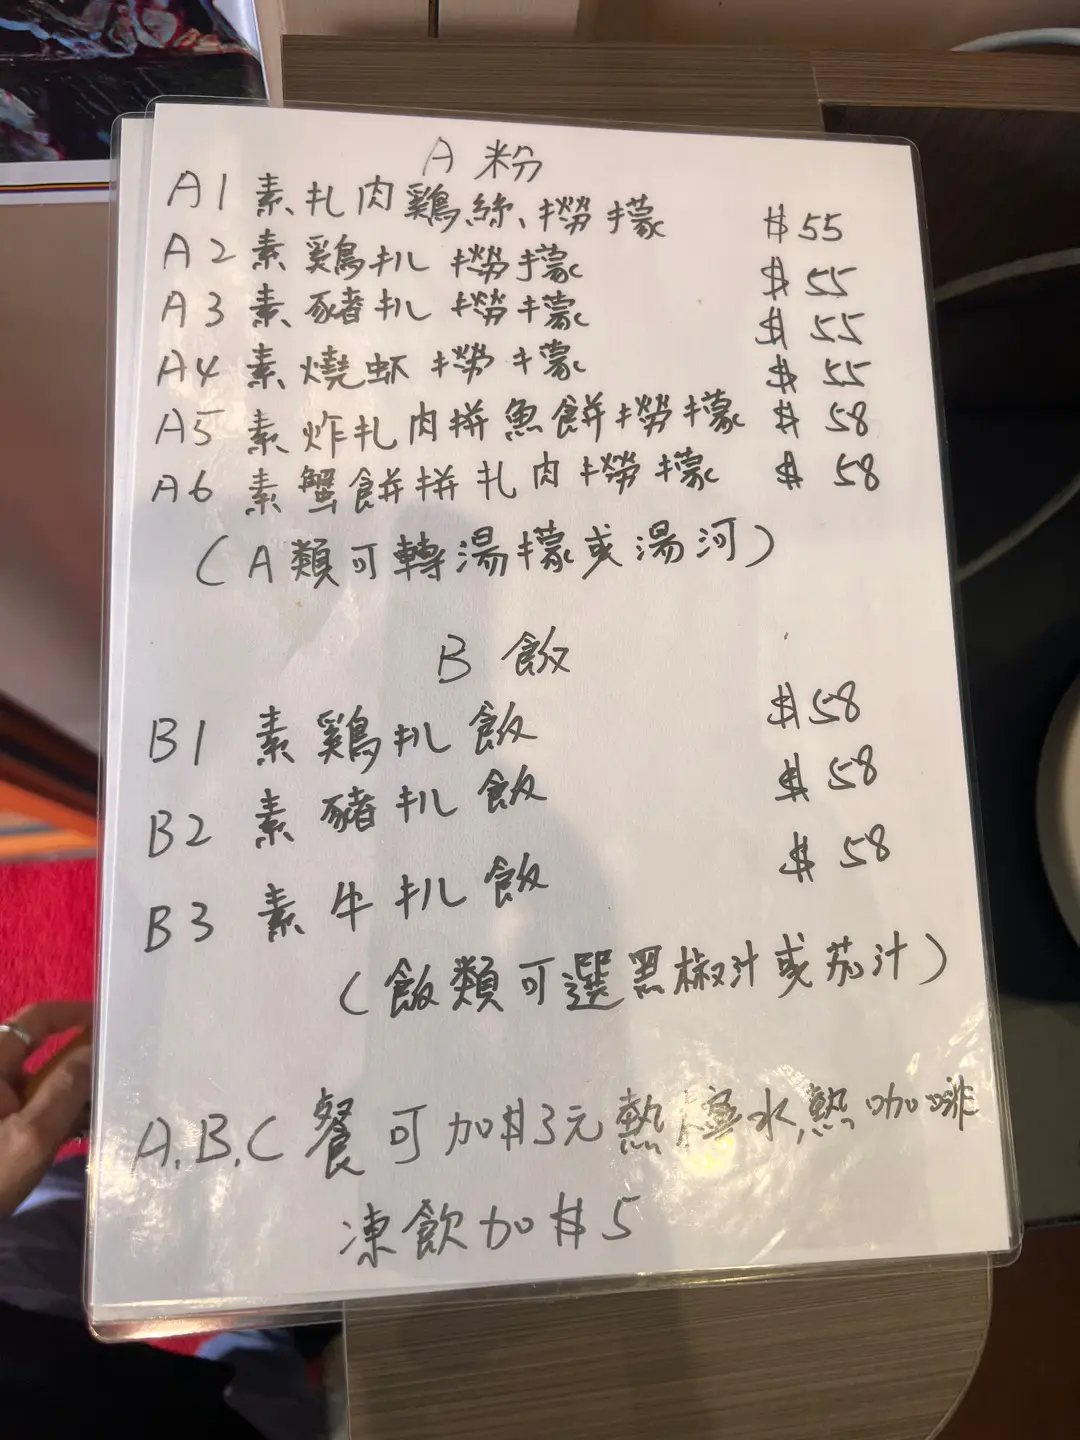 A 粉
A1 素扎肉鷄絲撈檬 $55
A2 素鷄扒撈檬 $55
A3 素豬扒撈檬 $55
A4 素燒蚜撈檬 $55
A5 素炸扎肉拼魚餅撈檬 $58
A6 素蟹餅拼扎肉撈檬 $58
(A類可轉湯檬或湯河)
B 飯
B1 素鷄扒飯 $58
B2 素豬扒飯 $58
B3 素牛扒飯 $58
(飯類可選黑椒汁或茄汁)
A.B.C 餐可加$3元熱檸水,熱咖啡
凍飲加$5